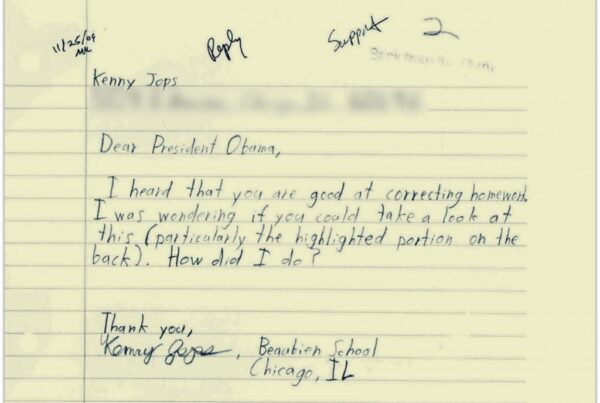 11/25/09
MR
Reply
Support
2
Back from the OVAL
Kenny Jops
Dear President Obama,
I heard that you are good at correcting homework.
I was wondering if you could take a look at
this (particularly the highlighted portion on the
back). How did I do?
Thank you,
Kenny Jops, Beaubien School
Chicago, IL